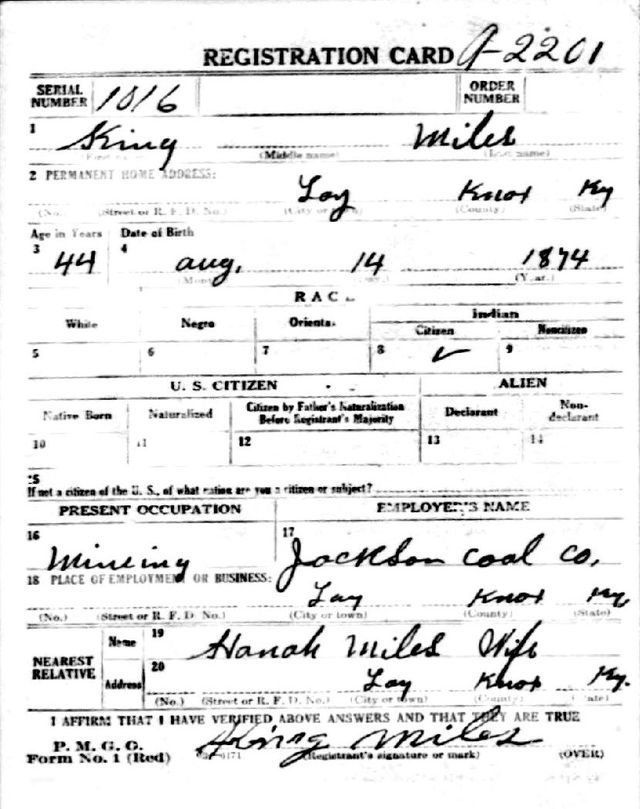 REGISTRATION CARD A-2201
SERIAL NUMBER 1016 ORDER NUMBER
1 King Miles
(Middle name) (Last name)
2 PERMANENT HOME ADDRESS:
Lay Knox Ky
(No.) (Street or R. F. D. No.) (City or town) (County) (State)
Age in Years Date of Birth
3 44 4 Aug. 14 1874
(Month) (Day) (Year)
RACE
White Negro Oriental Indian
Citizen Noncitizen
5 6 7 8 ✓ 9
U. S. CITIZEN ALIEN
Native Born Naturalized Citizen by Father's Naturalization Before Registrant's Majority Declarant Non-declarant
10 11 12 13 14
15
If not a citizen of the U. S., of what nation are you a citizen or subject?
PRESENT OCCUPATION EMPLOYER'S NAME
16 Mineing 17 Jackson Coal Co,
18 PLACE OF EMPLOYMENT OR BUSINESS:
Lay Knox Ky,
(No.) (Street or R. F. D. No.) (City or town) (County) (State)
NEAREST RELATIVE Name 19 Hanah Miles Wife
Address 20 Lay Knox Ky.
(No.) (Street or R. F. D. No.) (City or town) (County) (State)
I AFFIRM THAT I HAVE VERIFIED ABOVE ANSWERS AND THAT THEY ARE TRUE
P. M. G. O.
Form No. 1 (Red) King Miles
(Registrant's signature or mark) (OVER)